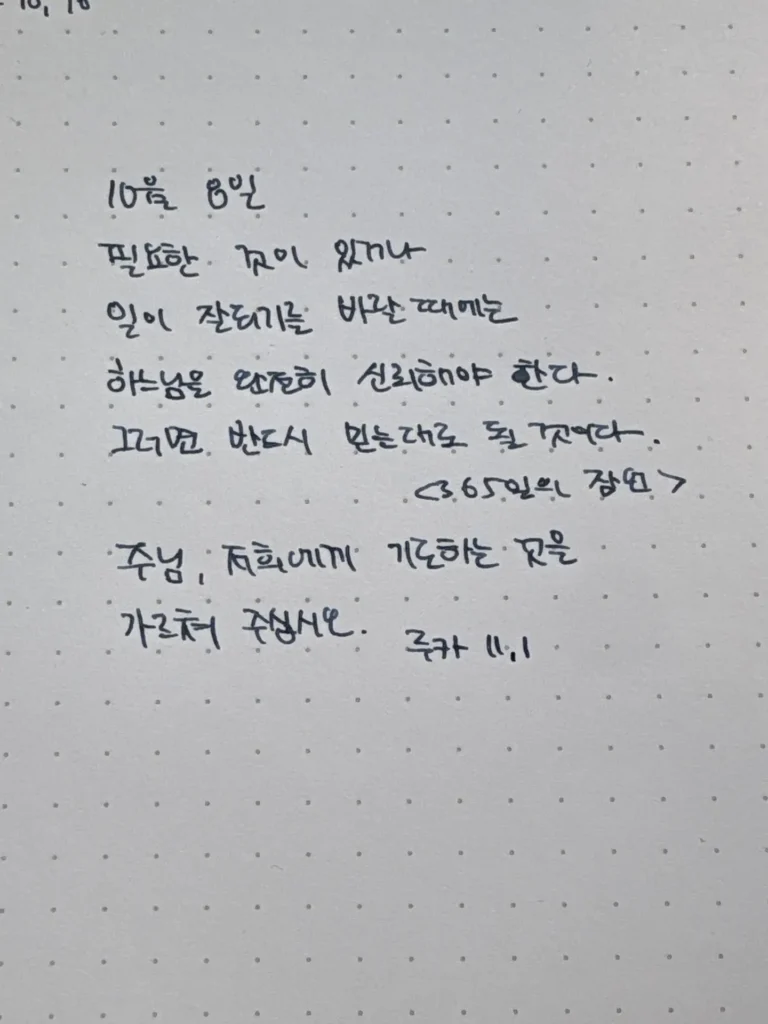 10월 8일
필요한 것이 있거나
일이 잘되기를 바랄 때에는
하느님을 완전히 신뢰해야 한다.
그러면 반드시 믿는대로 될 것이다.
<365일의 잠언>
주님, 저희에게 기도하는 것을
가르쳐 주십시오. 루카 11,1